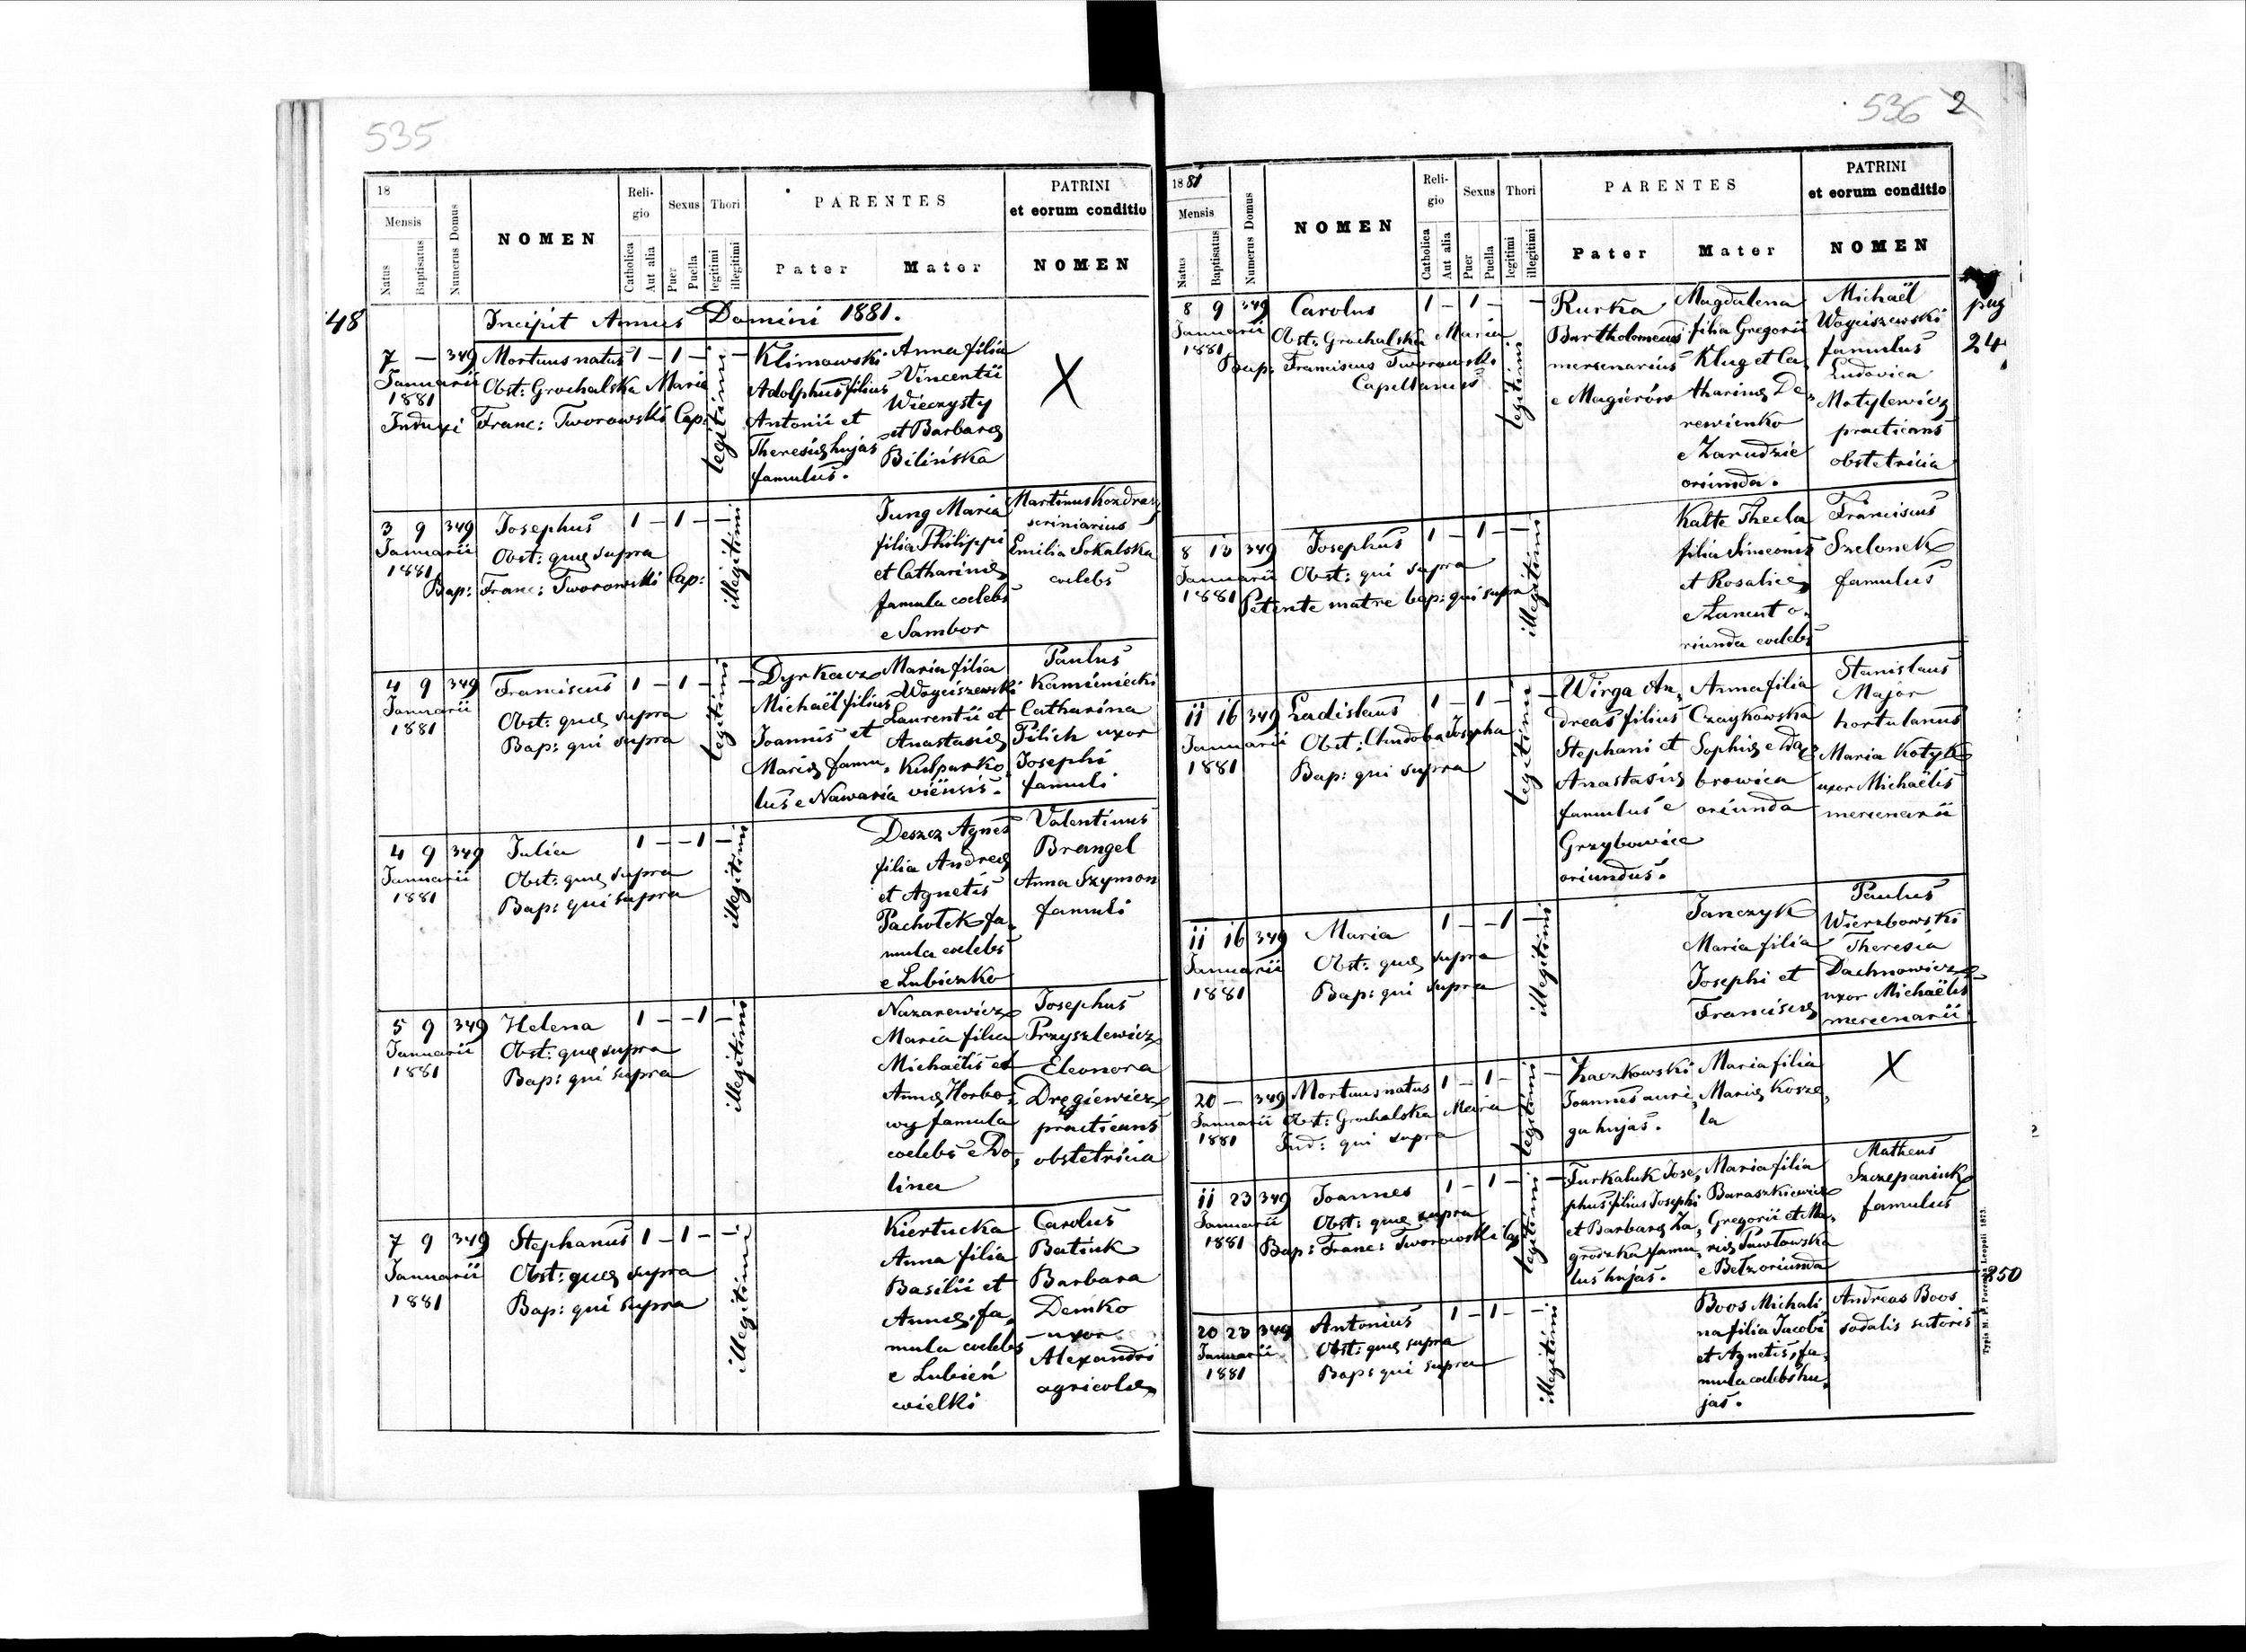 535
18
Mensis
Natus
Baptisatus
Numerus Domus
NOMEN
Religio
Catholica
Aut alia
Sexus
Puer
Puella
Thori
legitimi
illegitimi
PARENTES
Pater
Mater
PATRINI
et eorum conditio
NOMEN
48
Incipit Annus Domini 1881.
7 — 349 Mortuus natus 1 — 1 — —
Januarii
1881
Obst: Grochalska Maria
Induxi Franc: Tworowski Cap:
legitimi
Klimowski
Adolphus filius
Antonii et
Theresiæ hujas
famulus.
Anna filia
Vincentii
Wieczysty
et Barbaræ
Bilińska
X
3 9 349 Josephus 1 — 1 — —
Januarii
1881
Obst: quæ supra
Bap: Franc: Tworowski Cap:
illegitimi
Jung Maria
filia Philippi
et Catharinæ
famula coelebs
e Sambor
Martinus
scriniarius
Emilia Sokalska
coelebs
4 9 349 Franciscus 1 — 1 — —
Januarii
1881
Obst: quæ supra
Bap: qui supra
legitimi
Dyrkacz
Michaël filius
Joannis et
Mariæ famu,
lus e Nawaria
Maria filia
Woyciszewski
Laurentii et
Anastasiæ
Kulparko,
viensis.
Paulus
Kaminiecki
Catharina
Pilich uxor
Josephi
famuli
4 9 349 Julia 1 — — 1 —
Januarii
1881
Obst: quæ supra
Bap: qui supra
illegitimi
Deszcz Agnes
filia Andreæ
et Agnetis
Pachołek fa,
mula coelebs
e Lubieńko
Valentinus
Brangel
Anna Szymon
famuli
5 9 349 Helena 1 — — 1 —
Januarii
1881
Obst: quæ supra
Bap: qui supra
illegitimi
Nazarewicz
Maria filia
Michaëlis et
Annæ Horbo,
wy famula
coelebs e Do,
lina
Josephus
Przyszlewicz
Eleonora
Dręgiewicz
practicans
obstetricia
7 9 349 Stephanus 1 — 1 — —
Januarii
1881
Obst: quæ supra
Bap: qui supra
illegitimi
Kiertucka
Anna filia
Basilii et
Annæ, fa,
mula coelebs
e Lubień
wielki
Carolus
Batiuk
Barbara
Demko
uxor
Alexandri
agricolæ
536 2
1881
Mensis
Natus
Baptisatus
Numerus Domus
NOMEN
Religio
Catholica
Aut alia
Sexus
Puer
Puella
Thori
legitimi
illegitimi
PARENTES
Pater
Mater
PATRINI
et eorum conditio
NOMEN
pag
24
8 9 349 Carolus 1 — 1 — —
Januarii
1881
Obst: Grochalska Maria
Bap: Franciscus Tworowski
Capellanus
legitimi
Kurka
Bartholomeus
mercenarius
e Magierów
Magdalena
filia Gregorii
Kluz et Ca,
tharinæ De,
rewienko
e Zarudzie
oriunda.
Michaël
Woyciszewski
famulus
Ludovica
Motylewicz
practicans
obstetricia
8 13 349 Josephus 1 — 1 — —
Januarii
1881
Obst: qui supra
Petente matre bap: qui supra
illegitimi
Kalte Thecla
filia Simeonis
et Rosaliæ
e Łancut o,
riunda coelebs
Franciscus
Szelonek
famulus
11 16 349 Ladislaus 1 — 1 — —
Januarii
1881
Obst: Chudoba Josepha
Bap: qui supra
legitimi
Wirga An,
dreas filius
Stephani et
Anastasiæ
famulus e
Grzybowice
oriundus.
Anna filia
Czaykowska
Sophiæ e Dą,
browica
oriunda
Stanislaus
Major
hortulanus
Maria Kotyk
uxor Michaëlis
mercenarii
11 16 349 Maria 1 — — 1 —
Januarii
1881
Obst: quæ supra
Bap: qui supra
illegitimi
Janczyk
Maria filia
Josephi et
Franciscæ
Paulus
Wierzbowski
Theresia
Dachnowicz
uxor Michaëlis
mercenarii
20 — 349 Mortuus natus 1 — 1 — —
Januarii
1881
Obst: Grochalska Maria
Ind: qui supra
legitimi
Kaczkowski
Joannes auri,
ga hujas.
Maria filia
Mariæ Kosze,
la
X
11 23 349 Joannes 1 — 1 — —
Januarii
1881
Obst: quæ supra
Bap: Franc: Tworowski Cap
legitimi
Turkaluk Jose,
phus filius Josephi
et Barbaræ Za,
grodzka famu,
lus hujas.
Maria filia
Baraszkiewicz
Gregorii et Ma,
riæ Pawłowska
e Bełz oriunda
Matheus
Szczepaniuk
famulus
350
20 23 349 Antonius 1 — 1 — —
Januarii
1881
Obst: quæ supra
Bap: qui supra
illegitimi
Boos Michali,
na filia Jacobi
et Agnetis, fa,
mula coelebs hu,
jas.
Andreas Boos
sodalis sutoris
Typis M. F. Poremba Leopoli 1873.